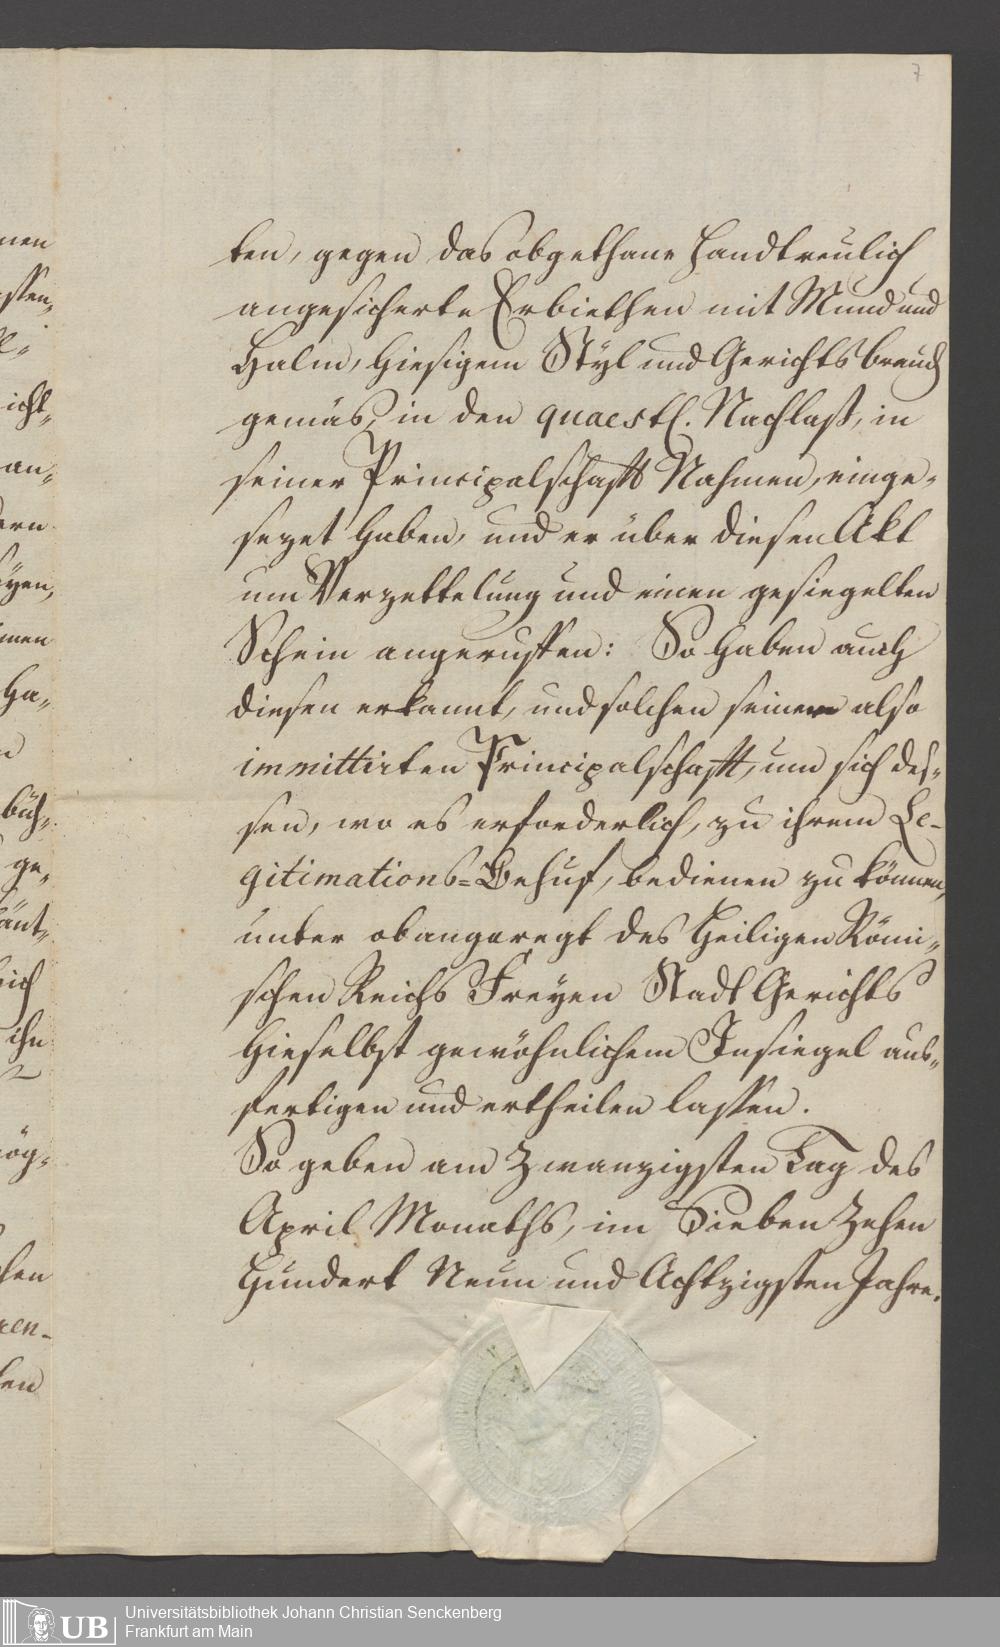 7
ten, gegen das obgethane handtreulich
angesicherte Erbiethen mit Mund und
Halm, hiesigem Styl und Gerichtsbrauch
gemäs, in den quaestl. Nachlaß, in
seiner Principalschafft Nahmen, einge-
sezet haben, und er über diesen Akt
um Verzettelung und einen gesiegelten
Schein angeruffen: So haben auch
diesen erkannt, und solchen seiner also
immittirten Principalschafft, um sich des-
sen, wo es erforderlich, zu ihrem Le-
gitimations-Behuf, bedienen zu können,
unter obangeregt des Heiligen Römi-
schen Reichs Freyen Stadt Gerichts
hieselbst gewöhnlichem Insiegel aus-
fertigen und ertheilen lassen.
So geben am Zwanzigsten Tag des
April Monaths, im Siebenzehen
Hundert Neun und Achtzigsten Jahre.
UB
Universitätsbibliothek Johann Christian Senckenberg
Frankfurt am Main